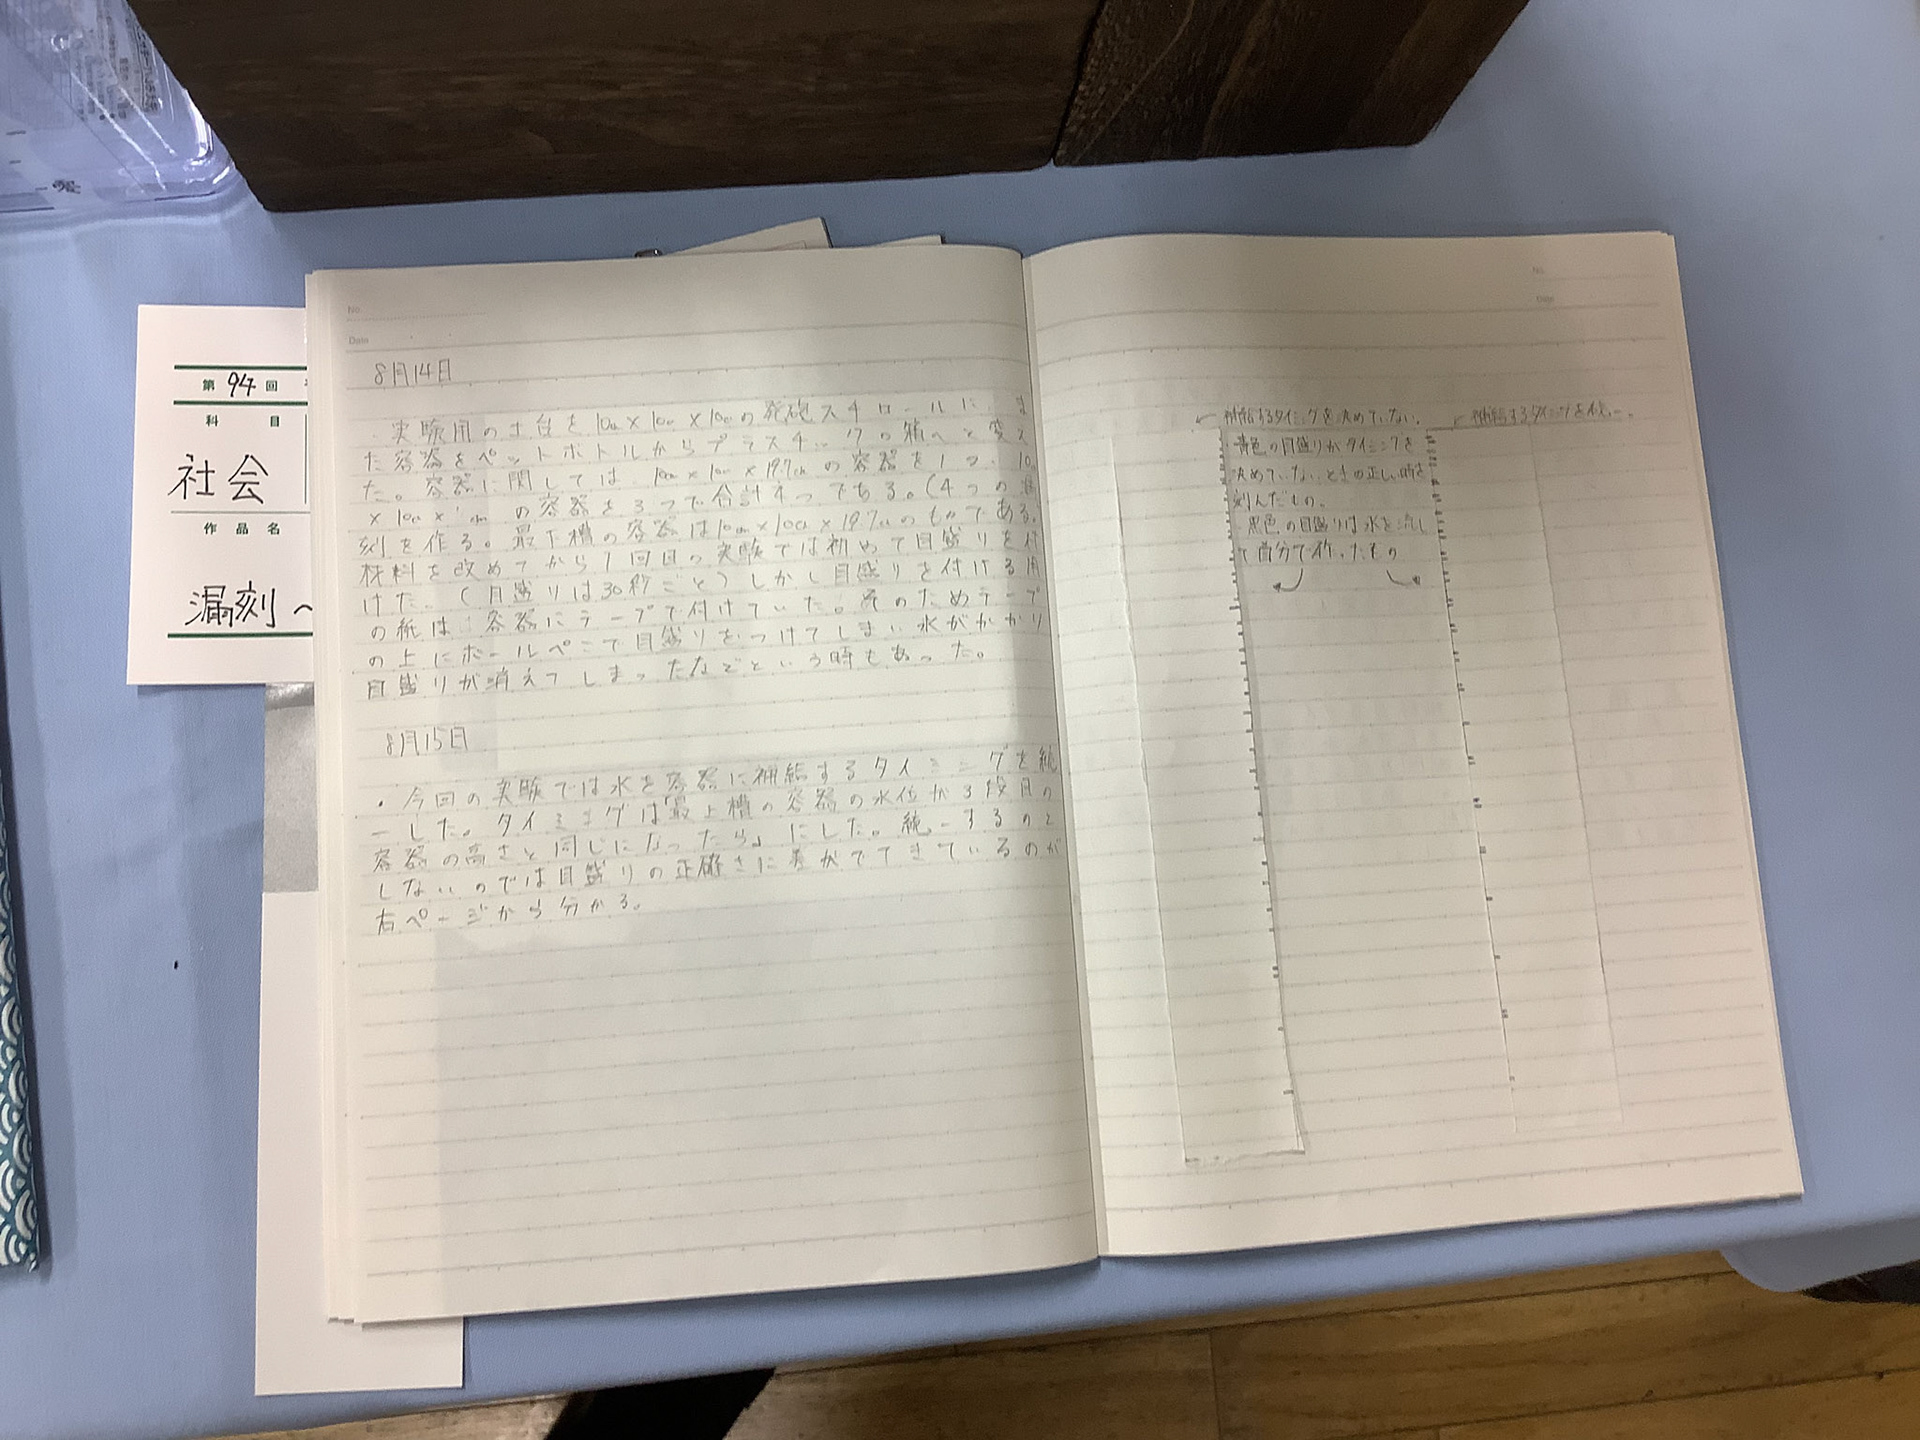 第94回
科目
社会
作品名
漏刻〜
No.
Date
8月14日
・実験用の土台を10cm×10cm×10cmの発砲スチロールに、ま
た容器をペットボトルからプラスチックの箱へと変え
た。容器に関しては、10cm×10cm×19.7cmの容器を1つ、10cm
×10cm× cmの容器を3つで合計4つである。(4つの漏
刻を作る。最下槽の容器は10cm×10cm×19.7cmのものである。
材料を改めてから1回目の実験では初めて目盛りを付
けた。(目盛りは30秒ごと)しかし目盛りを付ける用
の紙は、容器にテープで付けていた。そのためテープ
の上にボールペンで目盛りをつけてしまい水がかかり
目盛りが消えてしまったなどという時もあった。
8月15日
・今回の実験では水を容器に補給するタイミングを統
一した。タイミングは「最上槽の容器の水位が3段目の
容器の高さと同じになったら」にした。統一するのと
しないのでは目盛りの正確さに差がでてきているのが
右ページから分かる。
No.
Date
←補給するタイミングを決めていない。
←補給するタイミングを統一。
青色の目盛りがタイミングを
決めていないときの正しい時を
刻んだもの。
黒色の目盛りは水を流し
て自分で作ったもの